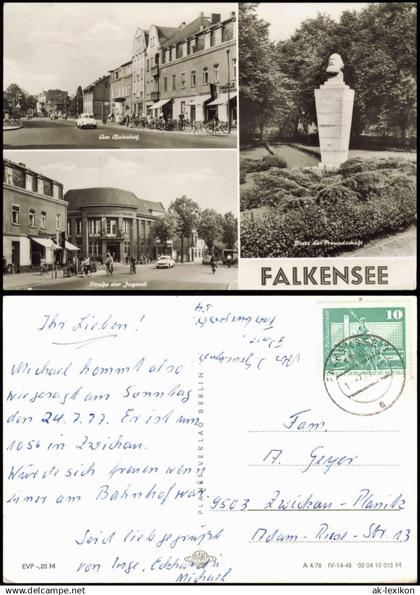 Am Bahnhof
Straße der Jugend
Platz der Freundschaft
FALKENSEE
Ihr Lieben!
Michael kommt also
wiegesagt am Sonntag
den 24.7.77. Er ist um
10 56 in Zwickau.
Würde sich freuen wenn
einer am Bahnhof war
Seid lieb gegrüßt
von Inge, Eckhard u
Michael
54
PLANET-VERLAG BERLIN
10
Fam.
A. Geyer
9503 Zwickau-Planitz
Adam-Riese-Str. 13
EVP -,20 M
A 4/76 IV-14-48 02 04 10 015 M
© ak-ansichtskarten.de
www.ak-lexikon.de